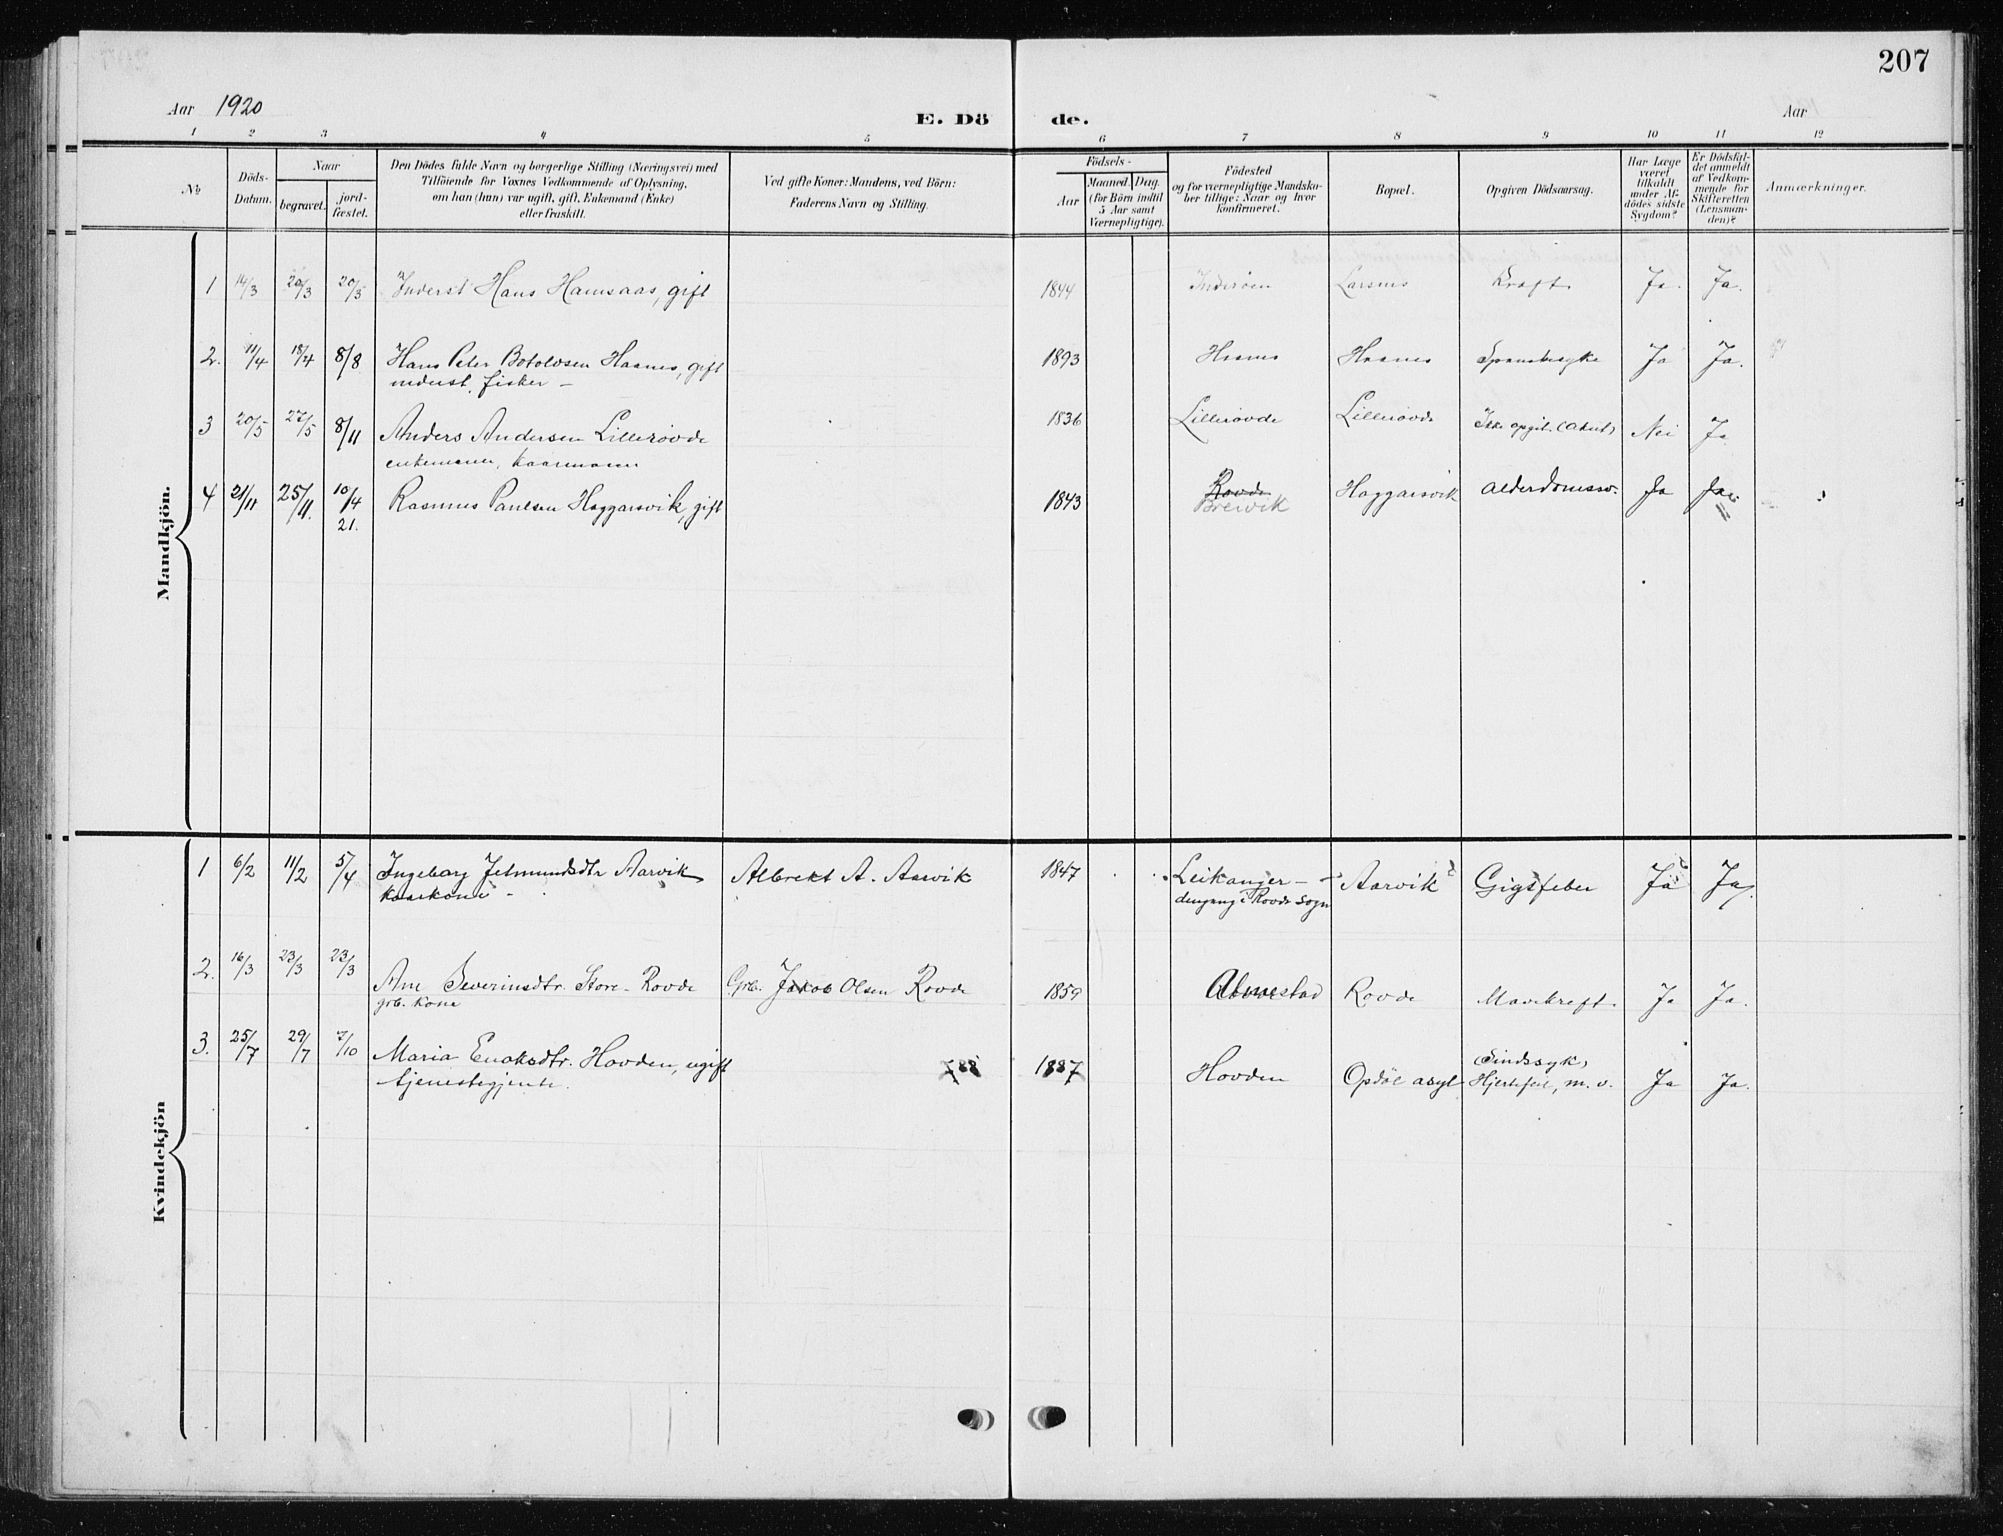 207
Aar 1920
E. Dö
de.
Aar
1 2 3 4 5 6 7 8 9 10 11 12
№
Döds-
Datum.
Naar
begravet.
jord-
fæstet.
Den Dödes fulde Navn og borgerlige Stilling (Næringsvei) med
Tilföiende for Voxnes Vedkommende af Oplysning,
om han (hun) var ugift, gift, Enkemand (Enke)
eller fraskilt.
Ved gifte Koner: Mandens, ved Börn:
Faderens Navn og Stilling.
Födsels-
Aar
Maaned. Dag.
(for Börn indtil
5 Aar samt
Værnepligtige).
Födested
og for værnepligtige Mandska-
ber tillige: Naar og hvor
konfirmeret.
Bopæl.
Opgiven Dödsaarsag.
Har Læge
været
tilkaldt
under Af-
dödes sidste
Sygdom?
Er Dödsfal-
det anmeldt
af Vedkom-
mende for
Skifteretten
(Lensman-
den)?
Anmærkninger.
Mandkjön.
1 14/3 20/3 20/3 Inderst Hans Hamsaas, gift 1844 Inderöen Larsnes Kræft Ja. Ja.
2. 11/4 18/4 8/8 Hans Peter Botolvsen Haanes, gift 1893 Haanes Haanes Spanskesyke Ja Ja.
inderst, fisker -
3 20/5 27/5 8/11 Anders Andersen Lillerovde 1836 Lillerovde Lillerovde Ikke opgit. (Akut) Nei Ja
enkemann, kaarmann
4 21/11 25/11. 10/4 21. Rasmus Paulsen Haggarsvik, gift 1843 Rovde Haggarsvik Alderdomssv. Ja Ja
Breivik
Kvindekjön
1 6/2 11/2 5/4 Ingeborg Jetmundsdtr Aarvik Albrekt A. Aarvik 1847 Leikanger - Aarvik Gigtfeber Ja Ja
kaarkone - dengang i Rovde sogn
2. 16/3 23/3 23/3 Ane Severinsdtr. Store-Rovde Grb. Jakob Olsen Rovde 1859 Almestad Rovde Mavekræft. Ja Ja.
grb. kone
3. 25/7 29/7 7/10 Maria Enoksdtr. Hovden, ugift 1887 Hovden Opdöl asyl Sindssyk,
tjenestegjente. Hjertefeil, m. v. Ja Ja.